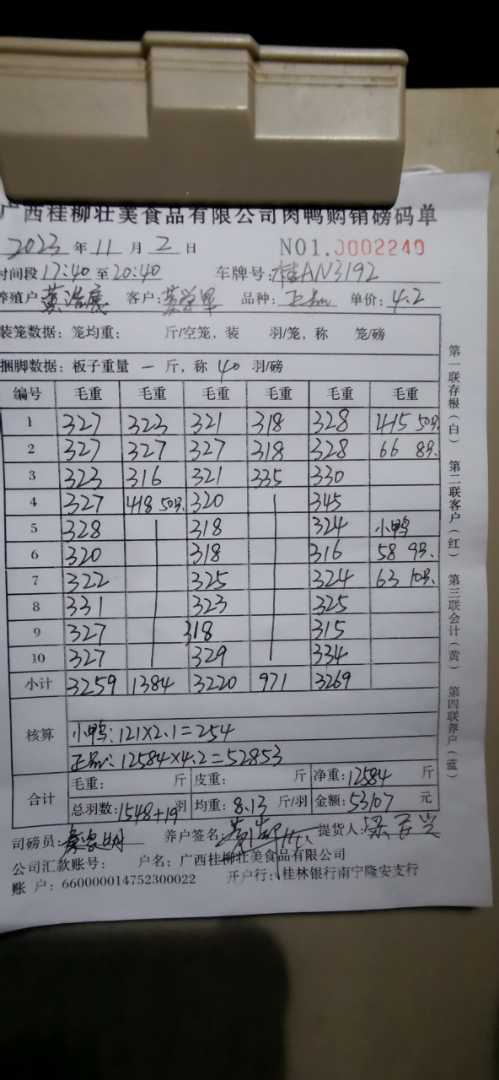 广西桂柳壮美食品有限公司肉鸭购销磅码单
2023 年 11 月 2 日 NO1.0002240
时间段 17:40 至 20:40 车牌号: 桂AN3192
养殖户 黄浩展 客户: 品种: 正品 单价: 4.2
装笼数据: 笼均重: 斤/空笼, 装 羽/笼, 称 笼/磅
捆脚数据: 板子重量 一 斤, 称 40 羽/磅
编号 毛重 毛重 毛重 毛重 毛重 毛重
1 327 323 321 318 328 415 50只
2 327 327 327 318 328 66 8只
3 323 316 321 335 330
4 327 418 50只 320 345
5 328 318 324 小鸭
6 320 318 316 58 9只
7 322 325 324 63 10只
8 331 323 325
9 327 318 315
10 327 329 334
小计 3259 1384 3220 971 3269
核算
小鸭: 121×2.1=254
正品: 12584×4.2=52853
合计
毛重: 斤 皮重: 斤 净重: 12584 斤
总羽数: 1548+19 羽 均重: 8.13 斤/羽 金额: 53107 元
司磅员: 养户签名: 提货人:
公司汇款账号: 户名: 广西桂柳壮美食品有限公司
账 户: 660000014752300022 开户行: 桂林银行南宁隆安支行
第一联存根(白) 第二联客户(红) 第三联会计(黄) 第四联养户(蓝)